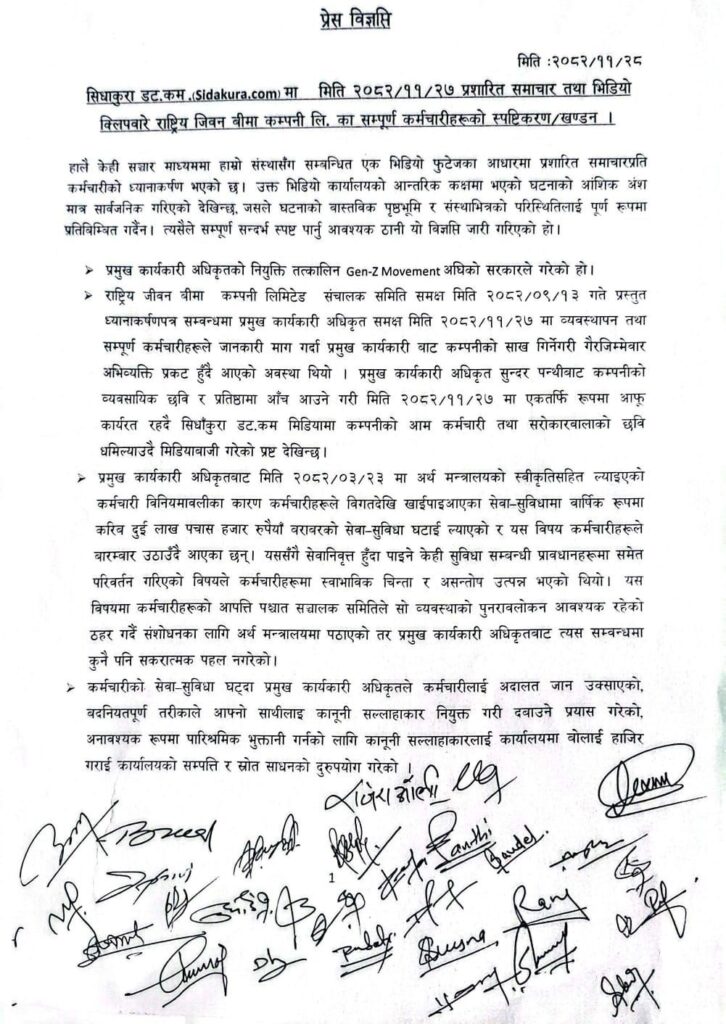 प्रेस विज्ञप्ति
मिति :२०८२/११/२८
सिधाकुरा डट.कम.(Sidakura.com) मा मिति २०८२/११/२७ प्रशारित समाचार तथा भिडियो
क्लिपवारे राष्ट्रिय जिवन बीमा कम्पनी लि. का सम्पूर्ण कर्मचारीहरूको स्पष्टिकरण/खण्डन ।
हालै केही सञ्चार माध्यममा हाम्रो संस्थासँग सम्बन्धित एक भिडियो फुटेजका आधारमा प्रशारित समाचारप्रति
कर्मचारीको ध्यानाकर्षण भएको छ। उक्त भिडियो कार्यालयको आन्तरिक कक्षमा भएको घटनाको आंशिक अंश
मात्र सार्वजनिक गरिएको देखिन्छ, जसले घटनाको वास्तविक पृष्ठभूमि र संस्थाभित्रको परिस्थितिलाई पूर्ण रूपमा
प्रतिबिम्वित गर्दैन। त्यसैले सम्पूर्ण सन्दर्भ स्पष्ट पार्नु आवश्यक ठानी यो विज्ञप्ति जारी गरिएको हो।
➢ प्रमुख कार्यकारी अधिकृतको नियुक्ति तत्कालिन Gen-Z Movement अघिको सरकारले गरेको हो।
➢ राष्ट्रिय जीवन बीमा कम्पनी लिमिटेड संचालक समिति समक्ष मिति २०८२/०९/१३ गते प्रस्तुत
ध्यानाकर्षणपत्र सम्वन्धमा प्रमुख कार्यकारी अधिकृत समक्ष मिति २०८२/११/२७ मा व्यवस्थापन तथा
सम्पूर्ण कर्मचारीहरूले जानकारी माग गर्दा प्रमुख कार्यकारी बाट कम्पनीको साख गिर्नेगरी गैरजिम्मेवार
अभिव्यक्ति प्रकट हुँदै आएको अवस्था थियो । प्रमुख कार्यकारी अधिकृत सुन्दर पन्थीबाट कम्पनीको
व्यवसायिक छवि र प्रतिष्ठामा आँच आउने गरी मिति २०८२/११/२७ मा एकतर्फि रूपमा आफु
कार्यरत रहदै सिधाँकुरा डट.कम मिडियामा कम्पनीको आम कर्मचारी तथा सरोकारवालाको छवि
धमिल्याउदै मिडियाबाजी गरेको प्रष्ट देखिन्छ।
➢ प्रमुख कार्यकारी अधिकृतबाट मिति २०८२/०३/२३ मा अर्थ मन्त्रालयको स्वीकृतिसहित ल्याइएको
कर्मचारी विनियमावलीका कारण कर्मचारीहरूले विगतदेखि खाईपाइआएका सेवा–सुविधामा वार्षिक रूपमा
करिब दुई लाख पचास हजार रुपैयाँ वरावरको सेवा–सुविधा घटाई ल्याएको र यस विषय कर्मचारीहरूले
बारम्वार उठाउँदै आएका छन्। यससँगै सेवानिवृत्त हुँदा पाइने केही सुविधा सम्बन्धी प्रावधानहरूमा समेत
परिवर्तन गरिएको विषयले कर्मचारीहरूमा स्वाभाविक चिन्ता र असन्तोष उत्पन्न भएको थियो। यस
विषयमा कर्मचारीहरूको आपत्ति पश्चात सञ्चालक समितिले सो व्यवस्थाको पुनरावलोकन आवश्यक रहेको
ठहर गर्दै संशोधनका लागि अर्थ मन्त्रालयमा पठाएको तर प्रमुख कार्यकारी अधिकृतबाट त्यस सम्वन्धमा
कुनै पनि सकारात्मक पहल नगरेको।
➢ कर्मचारीको सेवा–सुविधा घट्दा प्रमुख कार्यकारी अधिकृतले कर्मचारीलाई अदालत जान उक्साएको,
बदनियतपूर्ण तरीकाले आफ्नो साथीलाइ कानूनी सल्लाहाकार नियुक्त गरी दबाउने प्रयास गरेको,
अनावश्यक रूपमा पारिश्रमिक भुक्तानी गर्नको लागि कानूनी सल्लाहाकारलाई कार्यालयमा वोलाई हाजिर
गराई कार्यालयको सम्पत्ति र स्रोत साधनको दुरुपयोग गरेको ।
1